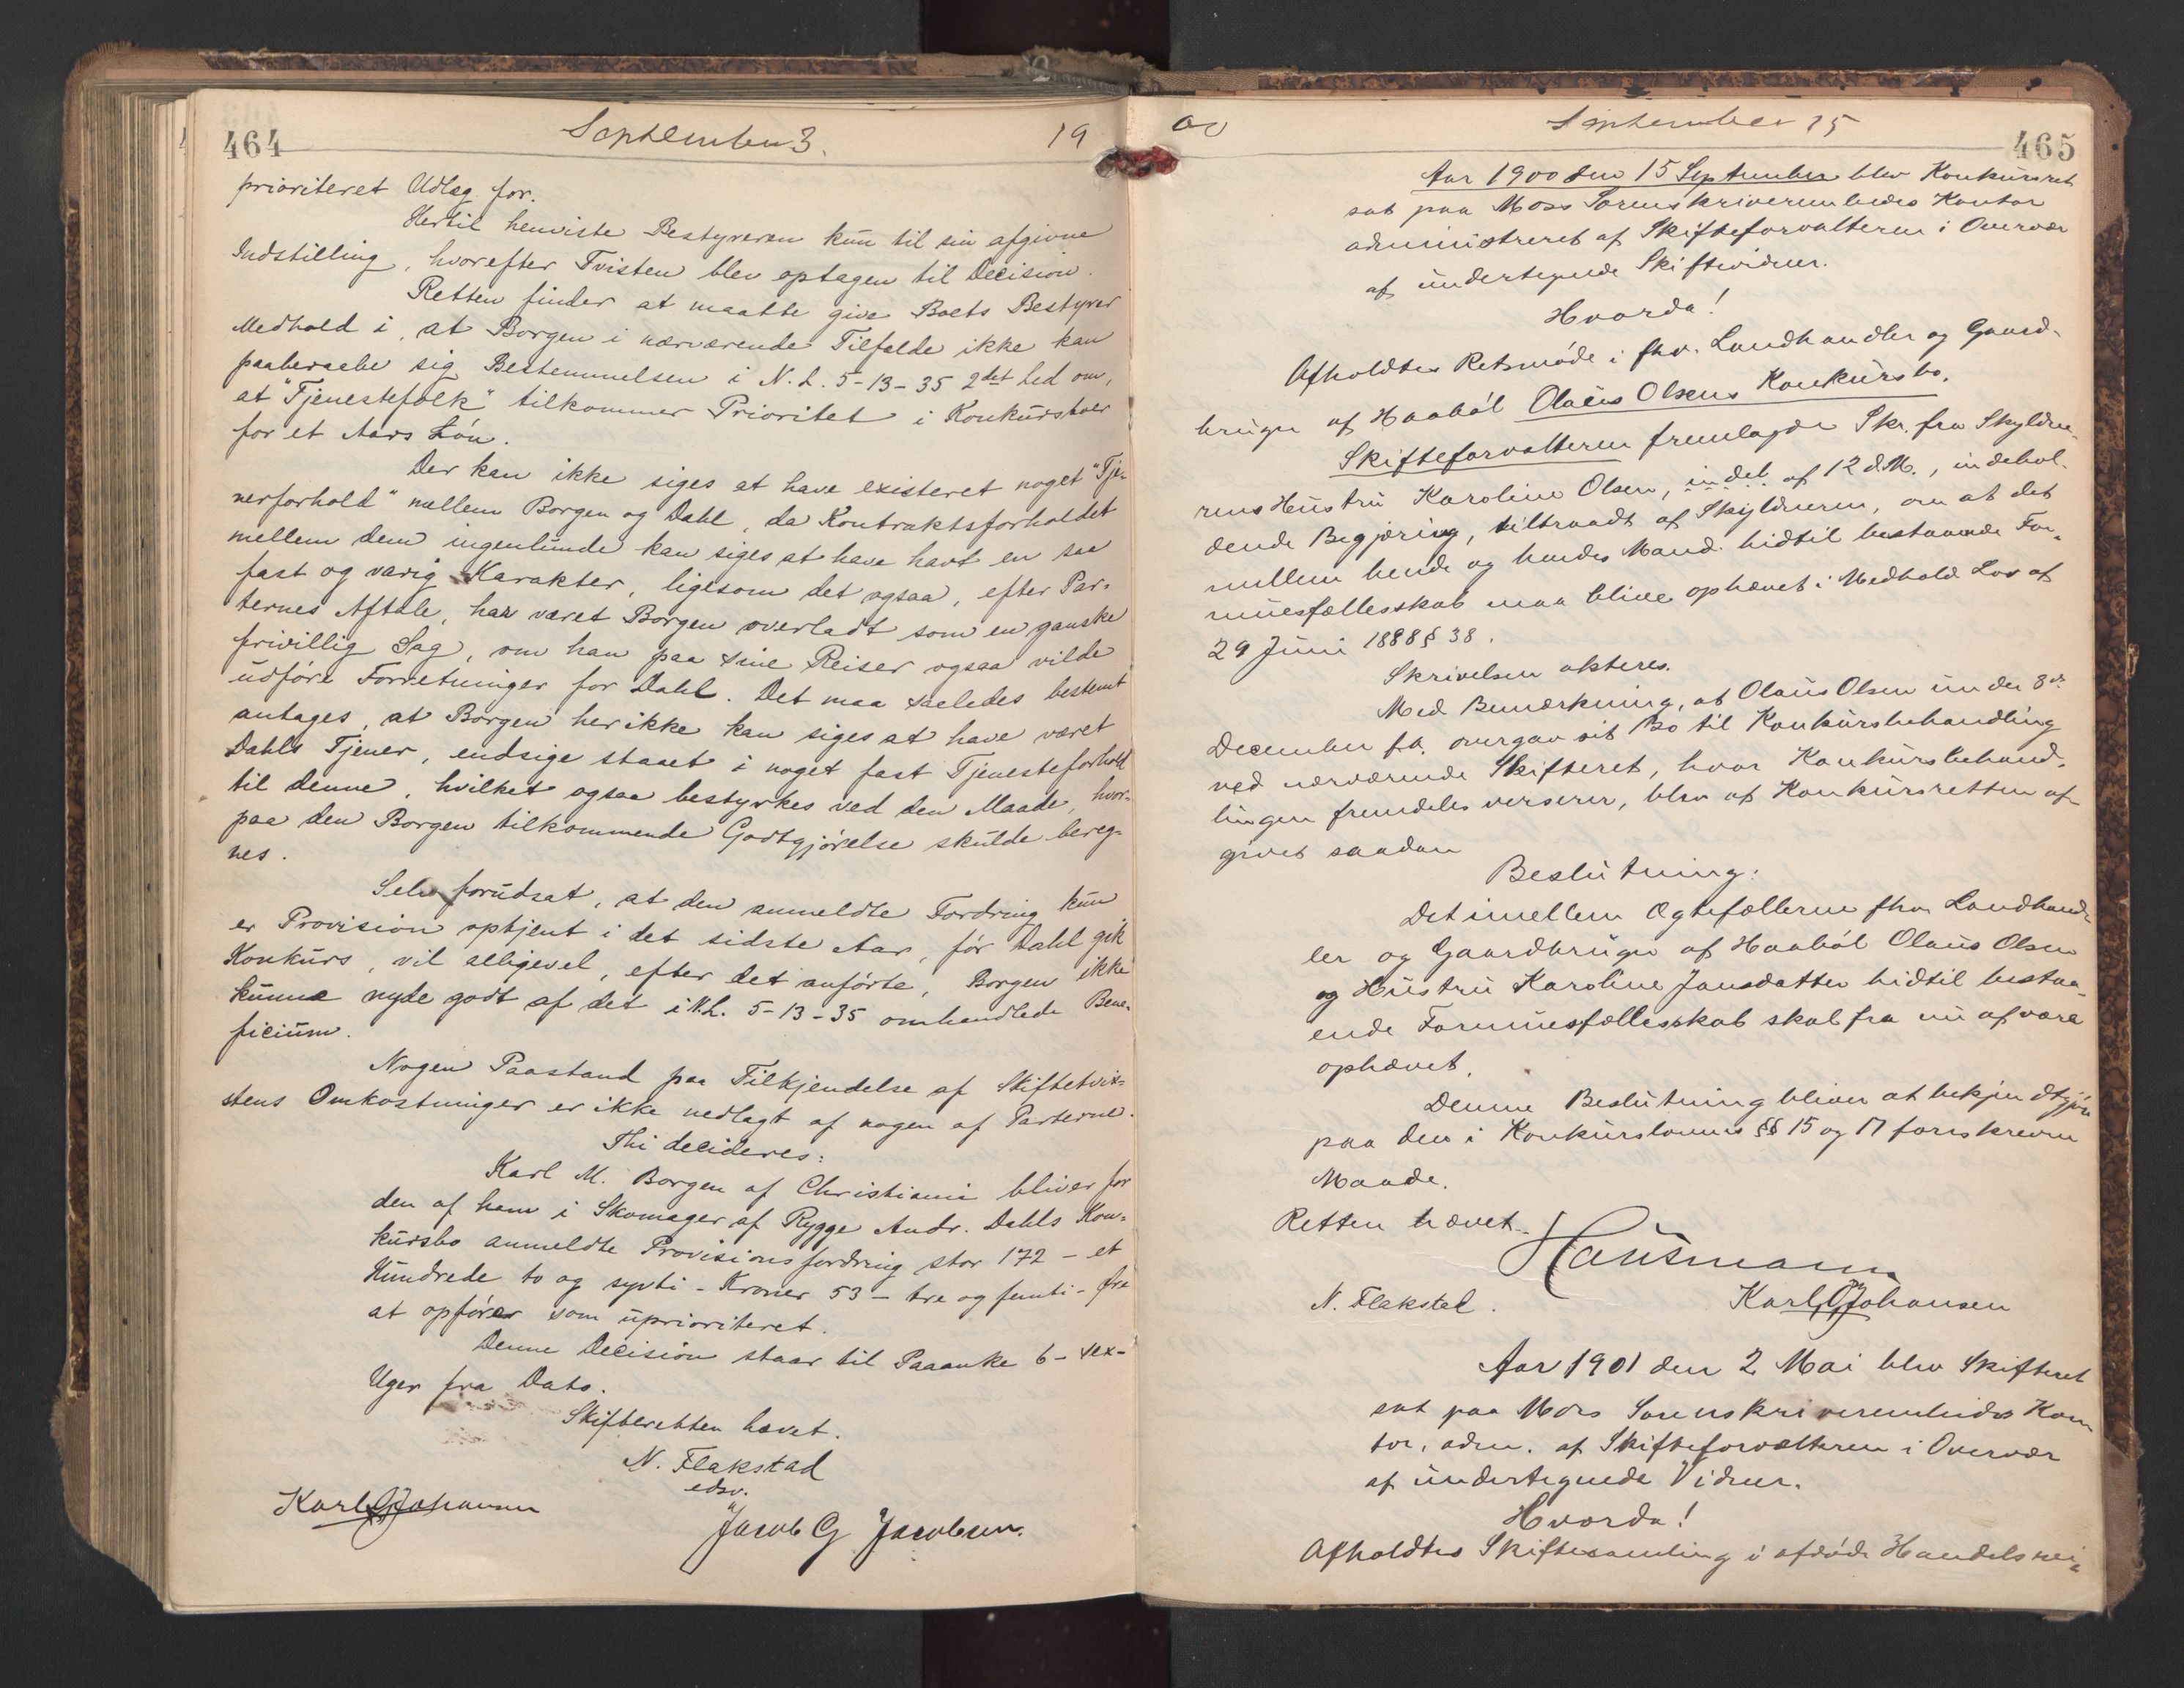 464
September 3.
19
prioriteret Udlæg for.
Hertil henviste Bestyreren kun til sin afgivne
Indstilling, hvorefter Tvisten blev optagen til Decision.
Retten finder at maatte give Boets Bestyrer
Medhold i, at Borgen i nærværende Tilfælde ikke kan
paaberaabe sig Bestemmelsen i N. L. 5-13-35 2det Led om,
at "Tjenestefolk" tilkommer Prioritet i Konkursboer
for et Aars Løn.
Der kan ikke siges at have existeret noget "Tje-
nerforhold" mellem Borgen og Dahl, da Kontraktsforholdet
mellem dem ingenlunde kan siges at have havt en saa
fast og varig Karakter, ligesom det ogsaa, efter Par-
ternes Aftale, har været Borgen overladt som en ganske
frivillig Sag, om han paa sine Reiser ogsaa vilde
udføre Forretninger for Dahl. Det maa saaledes bestemt
antages, at Borgen her ikke kan siges at have været
Dahls Tjener, endsige staaet i noget fast Tjenesteforhold
til denne, hvilket ogsaa bestyrkes ved den Maade, hvor-
paa den Borgen tilkommende Godtgjørelse skulde bereg-
nes.
Selv forudsat, at den anmeldte Fordring kun
er Provision optjent i det sidste Aar, før Dahl gik
Konkurs, vil alligevel, efter det anførte, Borgen ikke
kunne nyde godt af det i N.L. 5-13-35 omhandlede Bene-
ficium.
Nogen Paastand paa Tilkjendelse af Skiftetvi-
stens Omkostninger er ikke nedlagt af nogen af Parterne.
Thi decideres:
Karl M. Borgen af Christiania bliver for
den af ham i Skomager af Rygge Andr. Dahls Kon-
kursbo anmeldte Provisionsfordring stor 172 - et
Hundrede to og sytti - Kroner 53 - tre og femti - Øre
at opføres som uprioriteret.
Denne Decision staar til Paaanke 6 - sex -
Uger fra Dato.
Skifteretten hævet.
N. Flakstad
edsv.
Karl G Johansen
Jacob G Jacobsen.
00
September 15
465
Aar 1900 den 15 September blev Konkursret
sat paa Moss Sorenskriverembedes Kontor
administreret af Skifteforvalteren i Overvær
af undertegnede Skiftevidner.
Hvorda!
Afholdtes Retsmøde i fhv. Landhandler og Gaard-
bruger af Haabøl Olaus Olsens Konkursbo.
Skifteforvalteren fremlagde Skr. fra Skyldne-
rens Hustru Karoline Olsen, indeb. af 12 d.M., indehol-
dende Begjæring, tiltraadt af Skyldneren, om at det
mellem hende og hendes Mand hidtil bestaaende For-
muesfællesskab maa blive ophævet i Medhold Lov af
29 Juni 1888 § 38.
Skrivelsen akteres.
Med Bemærkning, at Olaus Olsen under 3die
December f.A. overgav sit Bo til Konkursbehandling
ved nærværende Skifteret, hvor Konkursbehand-
lingen fremdeles verserer, blev af Konkursretten af-
givet saadan
Beslutning:
Det imellem Ægtefællerne fhv Landhand-
ler og Gaardbruger af Haabøl Olaus Olsen
og Hustru Karoline Jansdatter hidtil bestaa-
ende Formuesfællesskab skal fra nu af være
ophævet.
Denne Beslutning bliver at bekjendtgjøre
paa den i Konkurslovens §§ 15 og 17 foreskrevne
Maade.
Retten hævet.
Hansmann
N. Flakstad.
Karl G Johansen
Aar 1901 den 2 Mai blev Skifteret
sat paa Moss Sorenskriverembedes Kon
tor, adm. af Skifteforvalteren i Overvær
af undertegnede Vidner.
Hvorda!
Afholdtes Skiftesamling i afdøde Handelsrei-